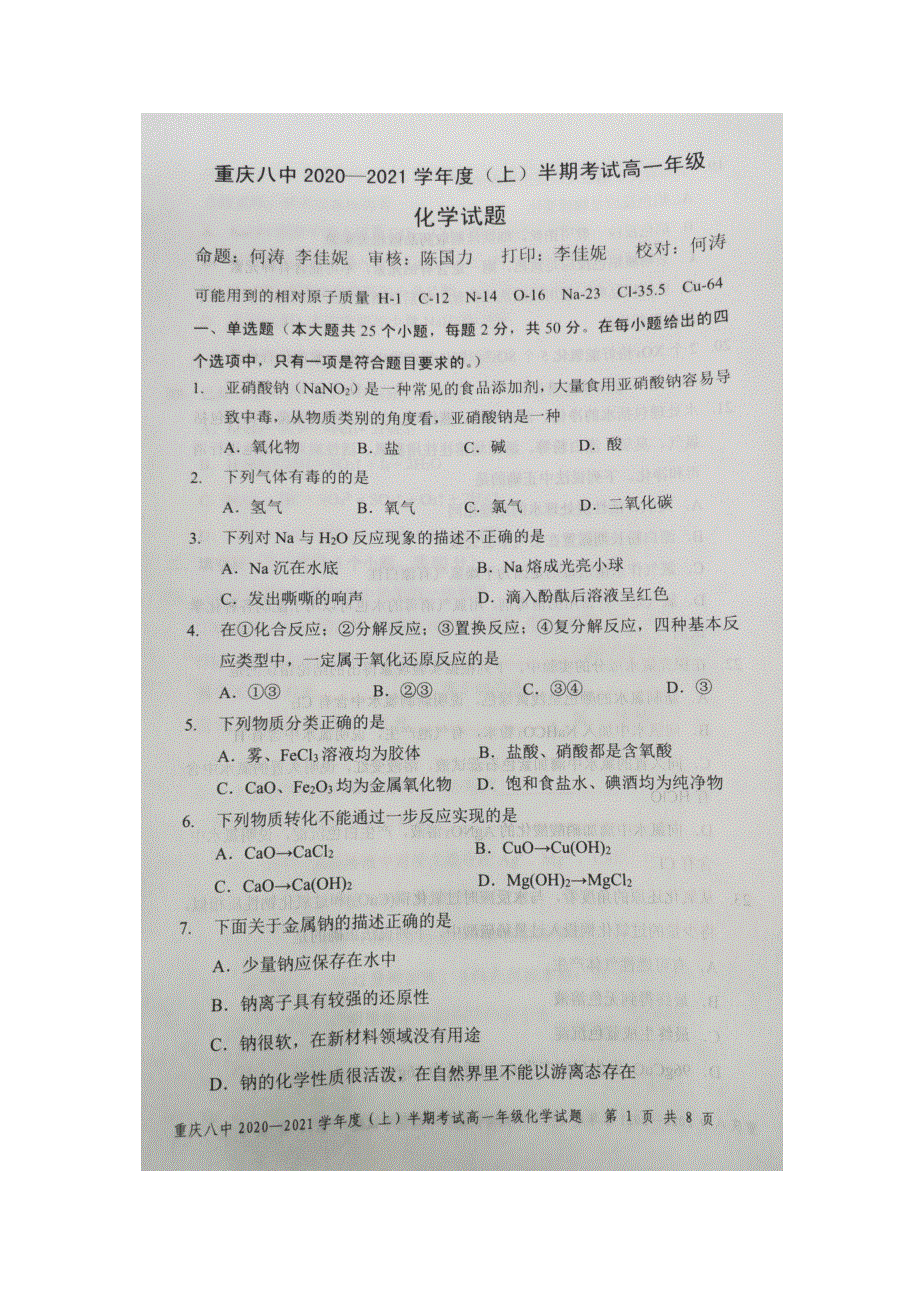 重庆八中 2020—2021 学年度（上）半期考试高一年级
化学试题
命题：何涛 李佳妮 审核：陈国力 打印：李佳妮 校对：何涛
可能用到的相对原子质量 H-1 C-12 N-14 O-16 Na-23 Cl-35.5 Cu-64
一、单选题（本大题共 25 个小题，每题 2 分，共 50 分。在每小题给出的四
个选项中，只有一项是符合题目要求的。）
1. 亚硝酸钠（NaNO₂）是一种常见的食品添加剂，大量食用亚硝酸钠容易导
致中毒，从物质类别的角度看，亚硝酸钠是一种
A．氧化物 B．盐 C．碱 D．酸
2. 下列气体有毒的的是
A．氢气 B．氧气 C．氯气 D．二氧化碳
3. 下列对 Na 与 H₂O 反应现象的描述不正确的是
A．Na 沉在水底 B．Na 熔成光亮小球
C．发出嘶嘶的响声 D．滴入酚酞后溶液呈红色
4. 在①化合反应；②分解反应；③置换反应；④复分解反应，四种基本反
应类型中，一定属于氧化还原反应的是
A．①③ B．②③ C．③④ D．③
5. 下列物质分类正确的是
A．雾、FeCl₃ 溶液均为胶体 B．盐酸、硝酸都是含氧酸
C．CaO、Fe₂O₃ 均为金属氧化物 D．饱和食盐水、碘酒均为纯净物
6. 下列物质转化不能通过一步反应实现的是
A．CaO→CaCl₂ B．CuO→Cu(OH)₂
C．CaO→Ca(OH)₂ D．Mg(OH)₂→MgCl₂
7. 下面关于金属钠的描述正确的是
A．少量钠应保存在水中
B．钠离子具有较强的还原性
C．钠很软，在新材料领域没有用途
D．钠的化学性质很活泼，在自然界里不能以游离态存在
重庆八中 2020—2021 学年度（上）半期考试高一年级化学试题 第 1 页 共 8 页